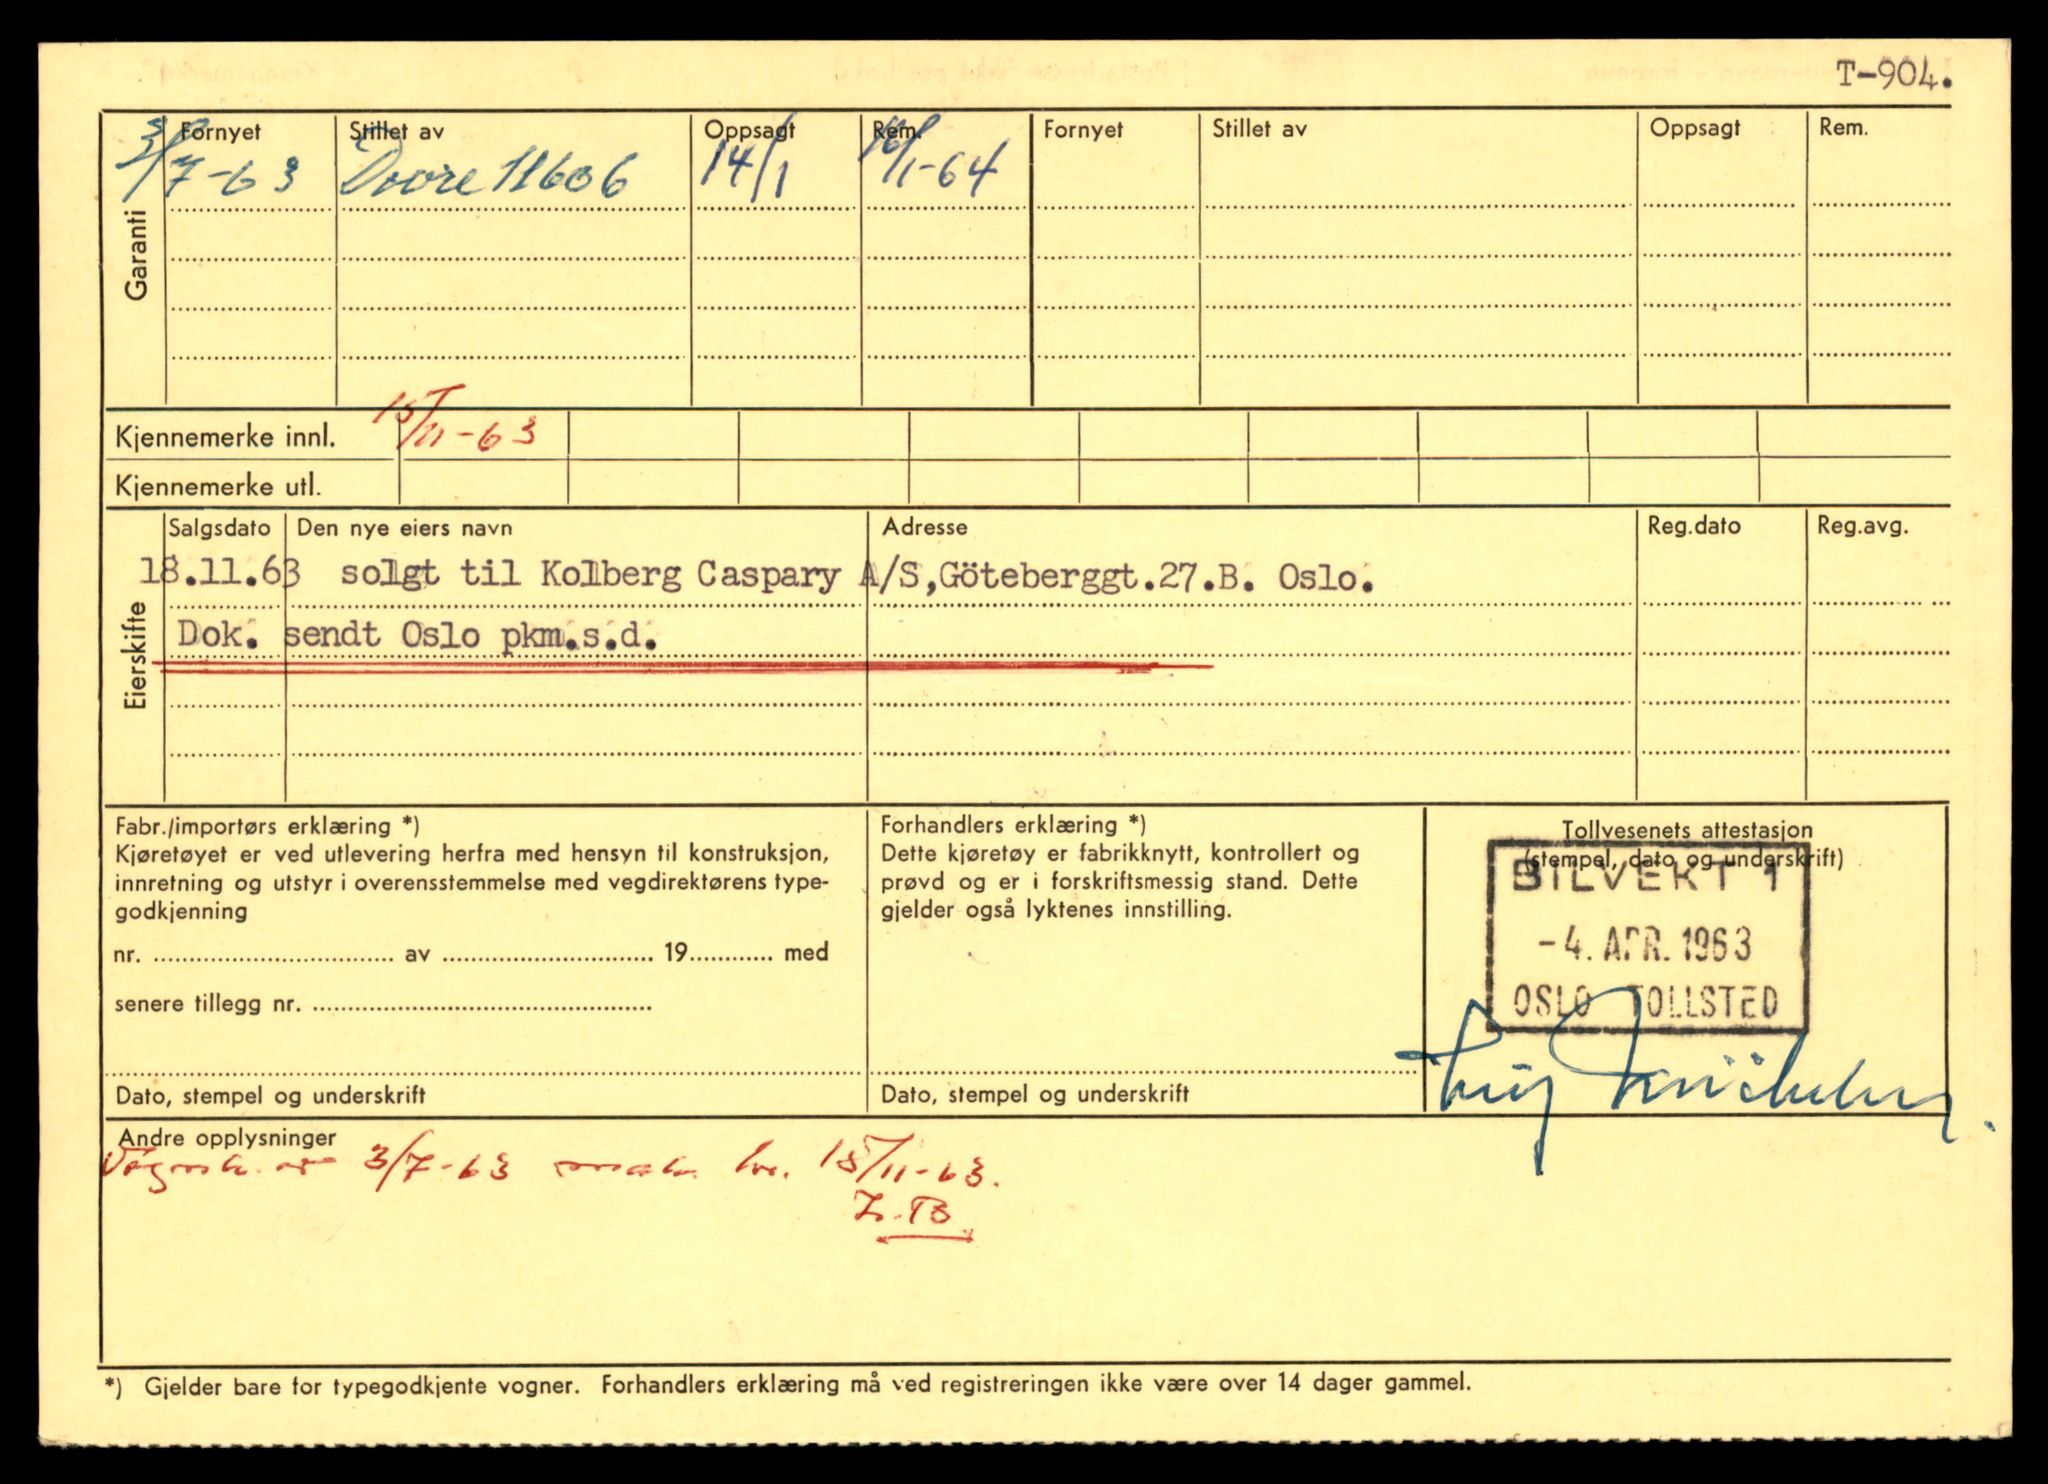 T-904.
Garanti
Fornyet Stillet av Oppsagt Rem. Fornyet Stillet av Oppsagt Rem.
3/7-63 Dovre 11606 14/1 16/1-64
Kjennemerke innl. 15/11-63
Kjennemerke utl.
Eierskifte
Salgsdato Den nye eiers navn Adresse Reg.dato Reg.avg.
18.11.63 solgt til Kolberg Caspary A/S,Göteberggt.27.B. Oslo.
Dok. sendt Oslo pkm.s.d.
Fabr./importørs erklæring *)
Kjøretøyet er ved utlevering herfra med hensyn til konstruksjon,
innretning og utstyr i overensstemmelse med vegdirektørens type-
godkjenning
nr. av 19 med
senere tillegg nr.
Dato, stempel og underskrift
Forhandlers erklæring *)
Dette kjøretøy er fabrikknytt, kontrollert og
prøvd og er i forskriftsmessig stand. Dette
gjelder også lyktenes innstilling.
Dato, stempel og underskrift
Tollvesenets attestasjon
(stempel, dato og underskrift)
BILVEKT 1
-4. APR. 1963
OSLO TOLLSTED
Andre opplysninger
Vognk. av 3/7-63 mak. lev. 15/11-63.